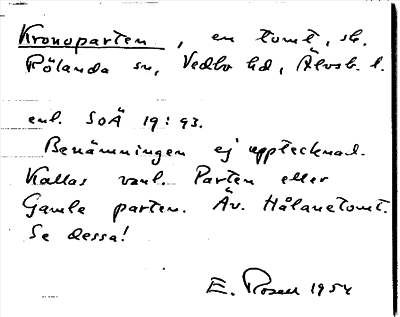 Kronoparten, en tomt, sk.
Rölanda sn, Vedbo hd, Älvsb. l.
enl. SOÄ 19:93.
Benämningen ej upptecknad.
Kallas vanl. Parten eller
Gamle parten. Äv. Hålanetomt.
Se dessa!
E. Rosell 1954